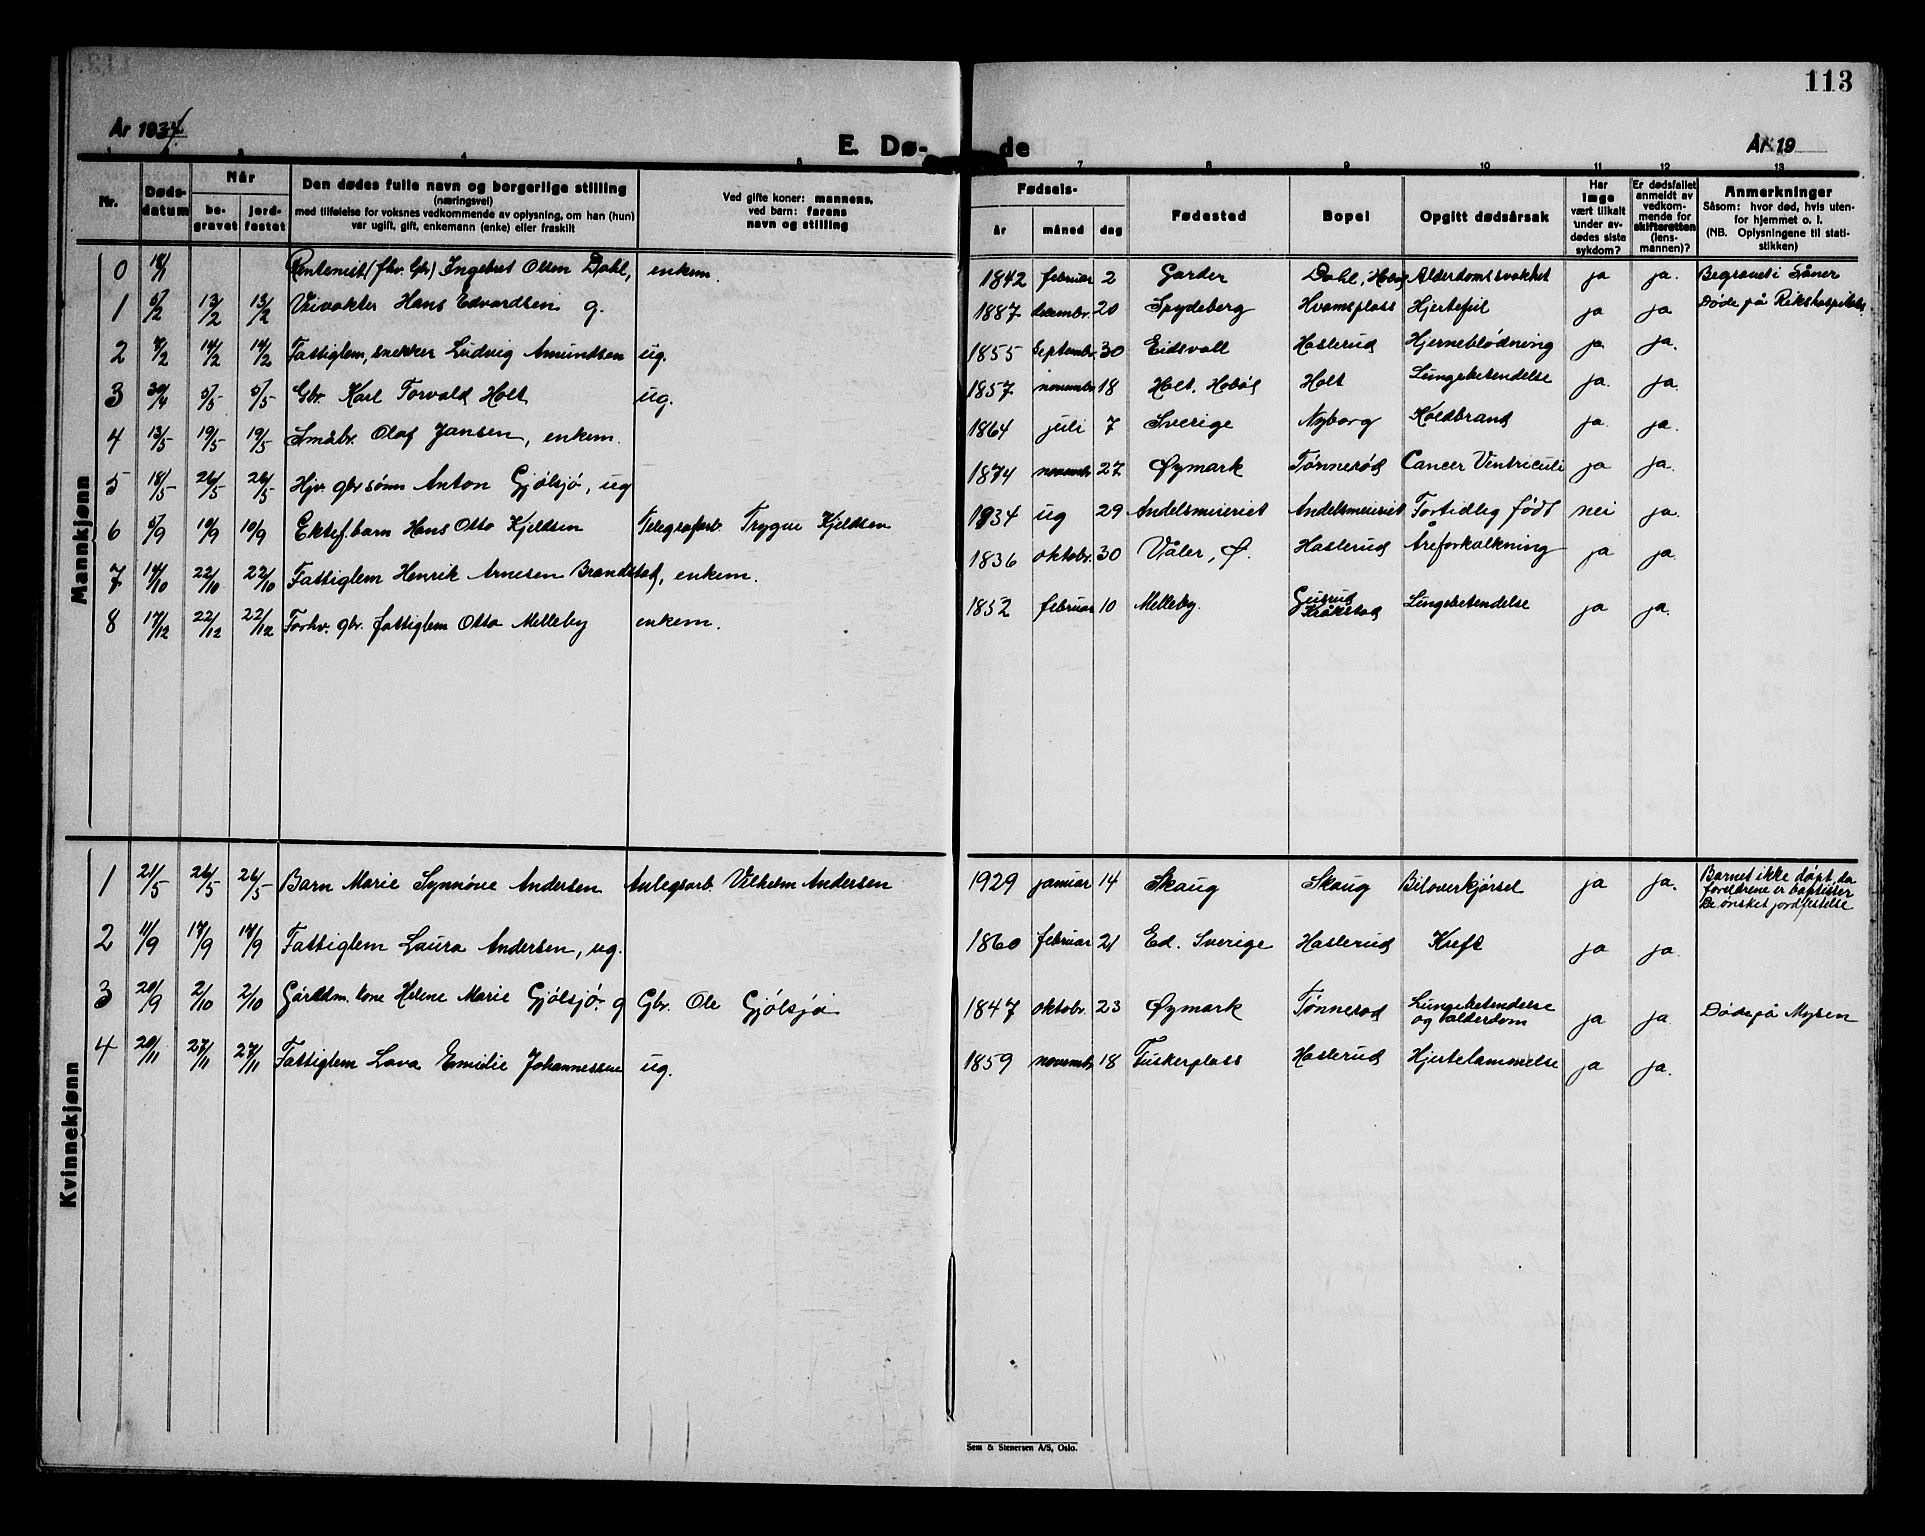 113
År 1934.
E. Dø- de
År 19
1 3 4 5 7 8 9 10 11 12 13
Nr.
Døds-
datum
Når
be-
gravet
jord-
festet
Den dødes fulle navn og borgerlige stilling
(næringsvei)
med tilføielse for voksnes vedkommende av oplysning, om han (hun)
var ugift, gift, enkemann (enke) eller fraskilt
Ved gifte koner: mannens,
ved barn: farens
navn og stilling
Fødsels-
år måned dag
Fødested
Bopel
Opgitt dødsårsak
Har
læge
vært tilkalt
under av-
dødes siste
sykdom?
Er dødsfallet
anmeldt av
vedkom-
mende for
skifteretten
(lens-
mannen)?
Anmerkninger
Såsom: hvor død, hvis uten-
for hjemmet o. l.
(NB. Oplysningene til stati-
stikken)
Mankjønn
0 18/1 Rentenist (fhv. Gbr) Ingebret Olsen Dahl, enkem. 1842 februar 2 Garder Dahl, Hobøl Alderdomssvakhet ja ja. Begravet i Såner
1 5/2 13/2 13/2 Veivokter Hans Edvardsen g. 1887 desembr. 20 Spydeberg Hvamsplass Hjertefeil ja ja Døde på Rikshospitalet
2 8/2 14/2 14/2 Fattiglem, snekker Ludvig Amundsen ug. 1855 Septembr. 30 Eidsvoll Haslerud Hjerneblødning ja ja.
3 30/4 5/5 5/5 Gbr. Karl Torvald Holt ug. 1857 novembr. 18 Holt, Hobøl Holt Lungebetendelse ja ja.
4 13/5 19/5 19/5 Småbr. Olaf Jansen, enkem. 1864 juli 7 Sverige Nyborg Koldbrand ja ja.
5 18/5 26/5 26/5 Hjv. gbr sønn Anton Gjølsjø, ug 1874 novembr 27 Øymark Tønnerød Cancer Ventriculi ja ja.
6 5/9 10/9 10/9 Ektef. barn Hans Otto Kjeldsen Telegrafarb. Trygve Kjeldsen 1934 ug 29 Andelsmeieriet Andelsmeieriet Fortidlig født nei ja.
7 14/10 22/10 22/10 Fattiglem Henrik Arnesen Brandstad, enkem. 1836 oktobr. 30 Våler, Ø. Haslerud Åreforkalkning ja ja.
8 17/12 22/12 22/12 Forhv. gbr. fattiglem Otto Melleby enkem. 1852 februar 10 Melleby. Kråkstad Lungebetendelse ja ja.
Kvinnekjønn
1 21/5 26/5 26/5 Barn Marie Synnøve Andersen Anlegsarb. Vilhelm Andersen 1929 januar 14 Skaug Skaug Biloverkjørsel ja ja. Barnet ikke døpt, da
foreldrene er baptister
De ønsket jordfestelse
2 11/9 17/9 17/9 Fattiglem Laura Andersen, ug. 1860 februar 21 Ed. Sverige Haslerud Kreft ja ja.
3 20/9 2/10 2/10 Gårdm. kone Helene Marie Gjølsjø. g Gbr. Ole Gjølsjø 1847 oktobr. 23 Øymark Tønnerød Lungebetendelse
og alderdom ja ja Døde på Mysen
4 20/11 27/11 27/11 Fattiglem Lova Emilie Johannessen ug. 1859 novembr. 18 Fuskerplass Haslerud Hjertelammelse ja ja.
Sem & Stenersen A/S, Oslo.